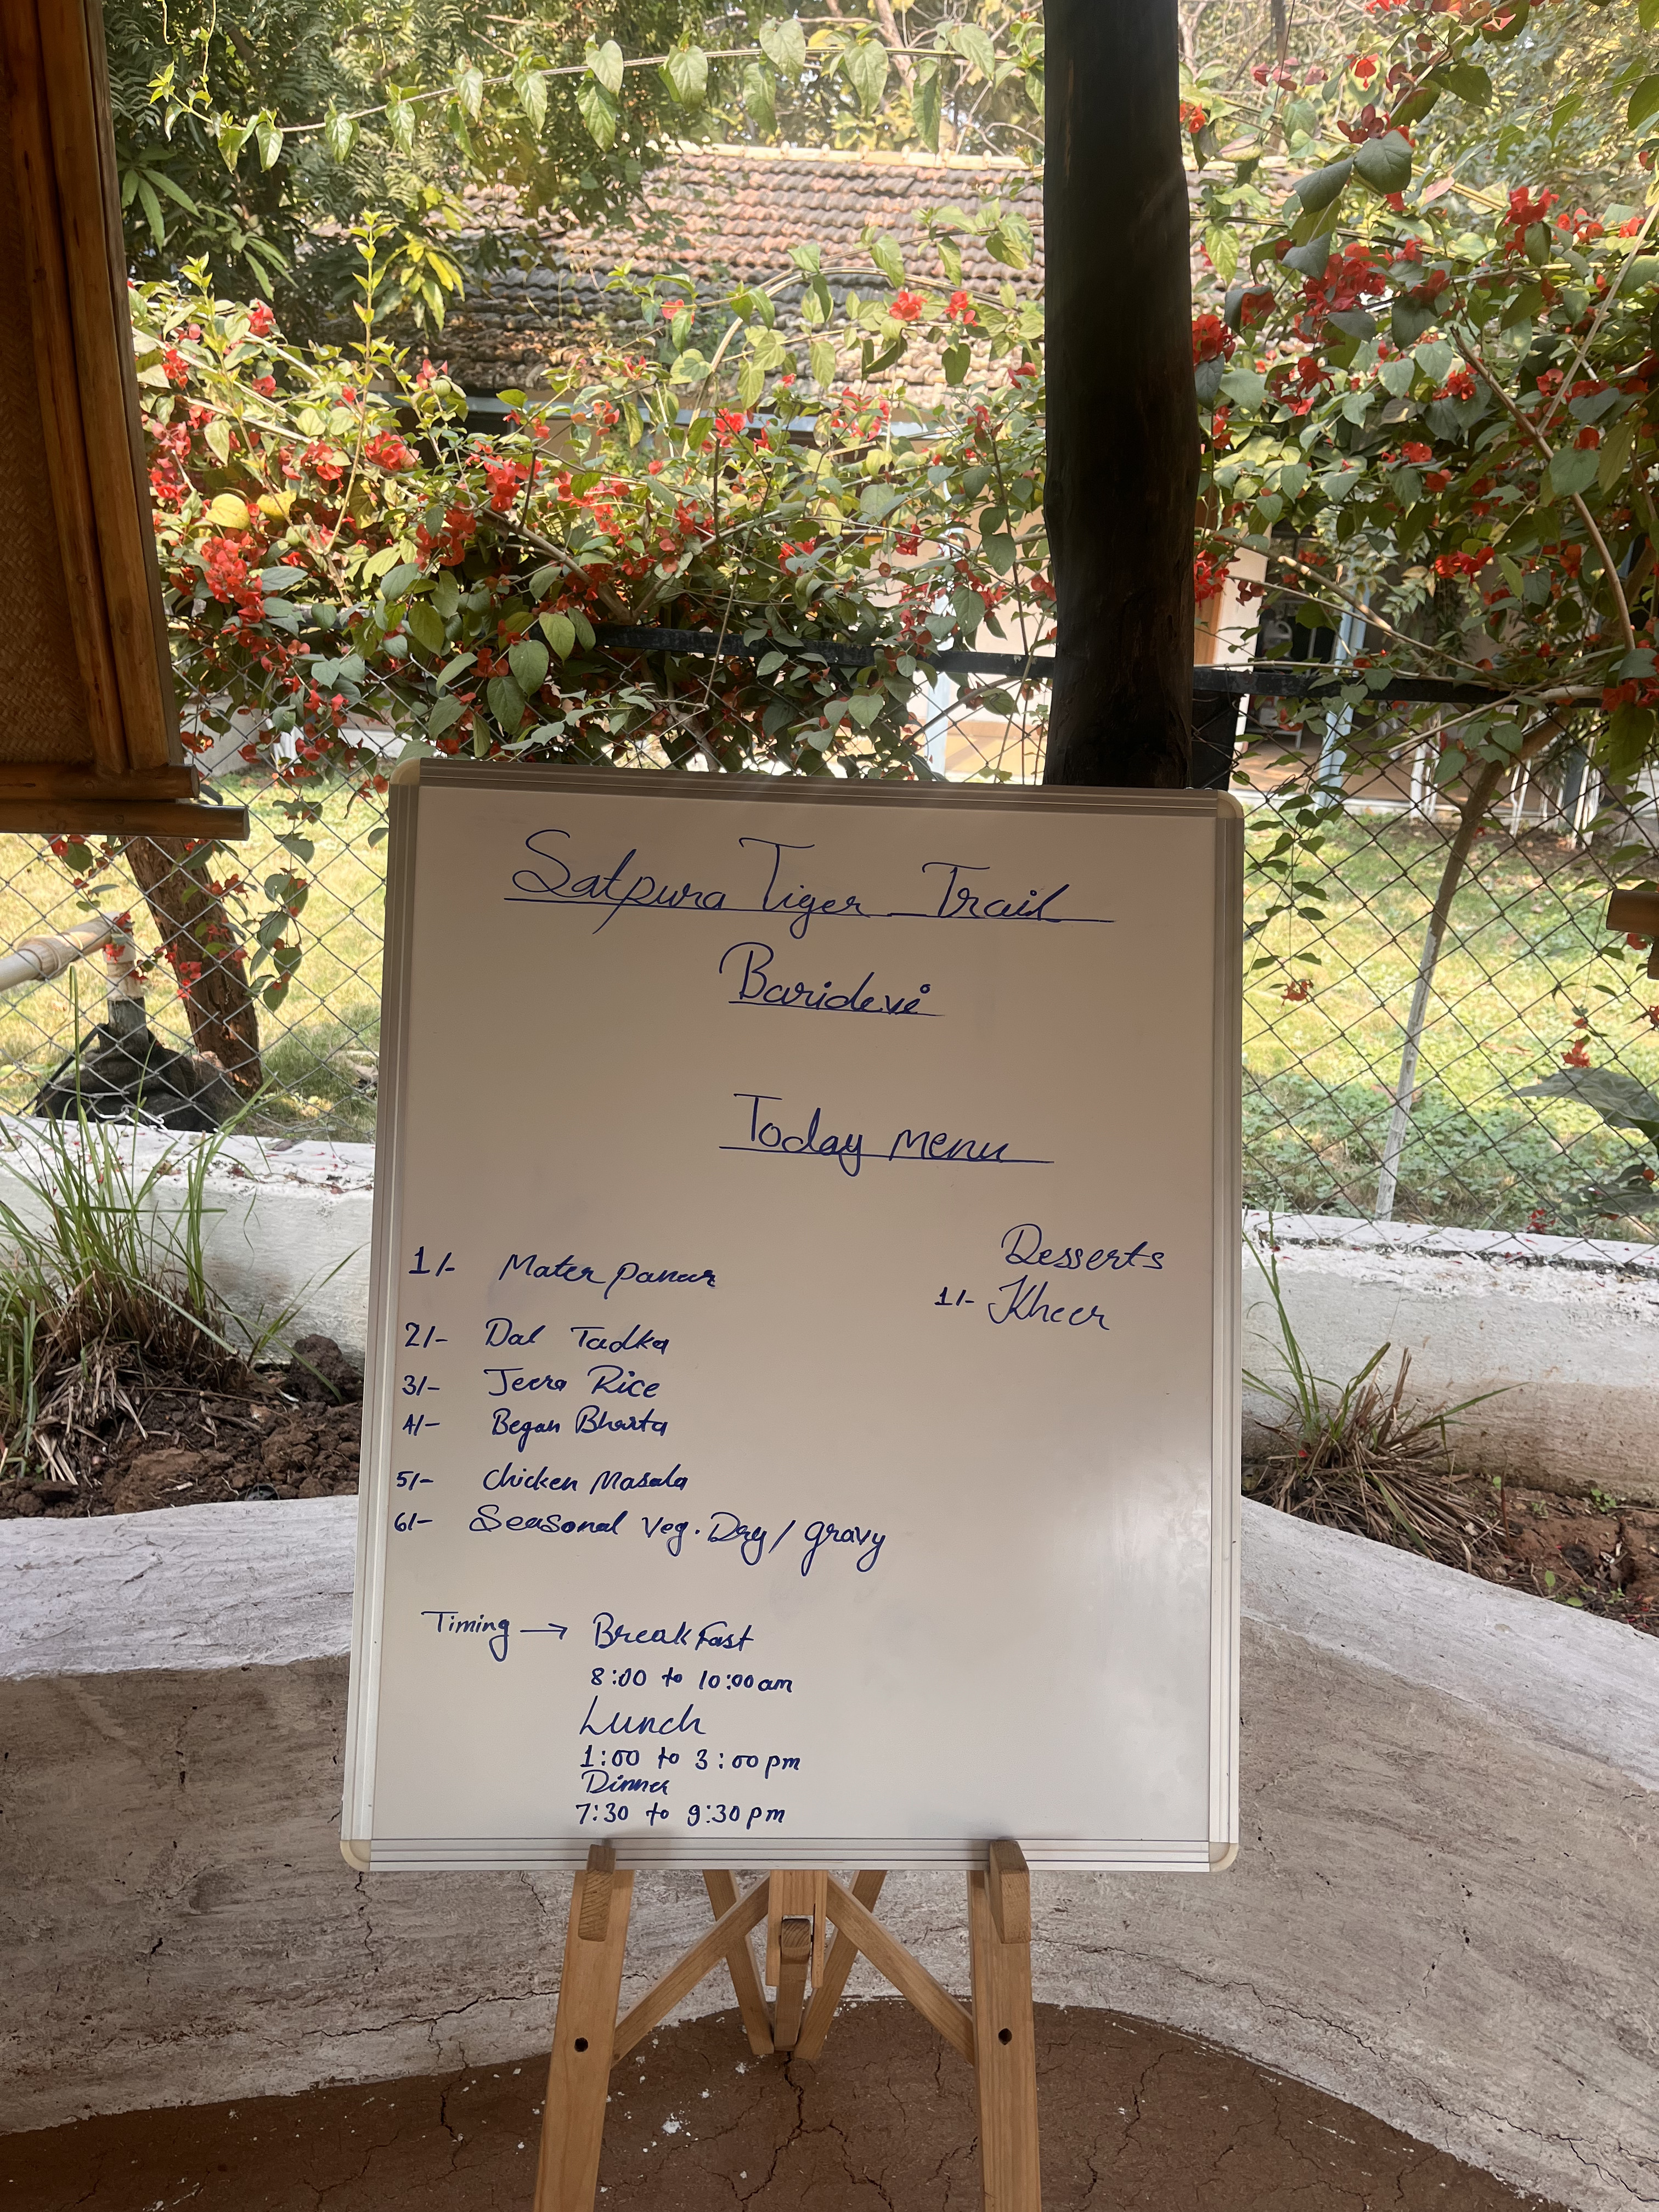 Satpura Tiger Trail
Baridevi
Today menu
1/- Mater paneer
2/- Dal Tadka
3/- Jeera Rice
4/- Began Bharta
5/- Chicken Masala
6/- Seasonal Veg. Dry / gravy
Desserts
1/- Kheer
Timing → Breakfast
8:00 to 10:00 am
Lunch
1:00 to 3:00 pm
Dinner
7:30 to 9:30 pm